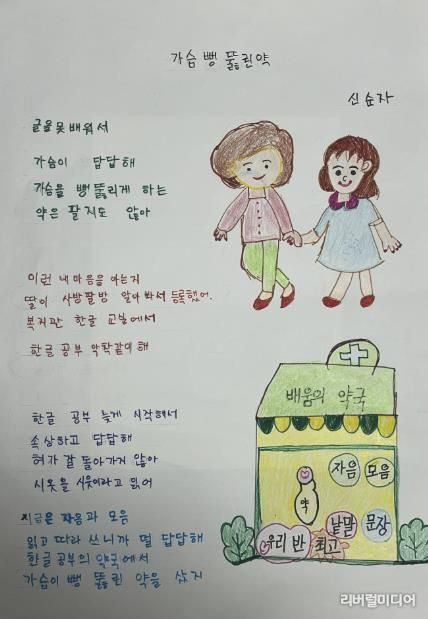 가슴 뻥 뚫린약
신순자
글을 못 배워서
가슴이 답답해
가슴을 뻥 뚫리게 하는
약은 팔지도 않아
이런 내 마음을 아는지
딸이 사방팔방 알아봐서 등록했어.
복지관 한글 교실에서
한글 공부 악착같이 해
한글 공부 늦게 시작해서
속상하고 답답해
혀가 잘 돌아가지 않아
시옷을 시웃이라고 읽어
지금은 자음과 모음
읽고 따라 쓰니까 덜 답답해
한글 공부의 약국에서
가슴이 뻥 뚫린 약을 샀지
배움의 약국
자음 모음
약
낱말 문장
우리 반 최고
리버럴미디어